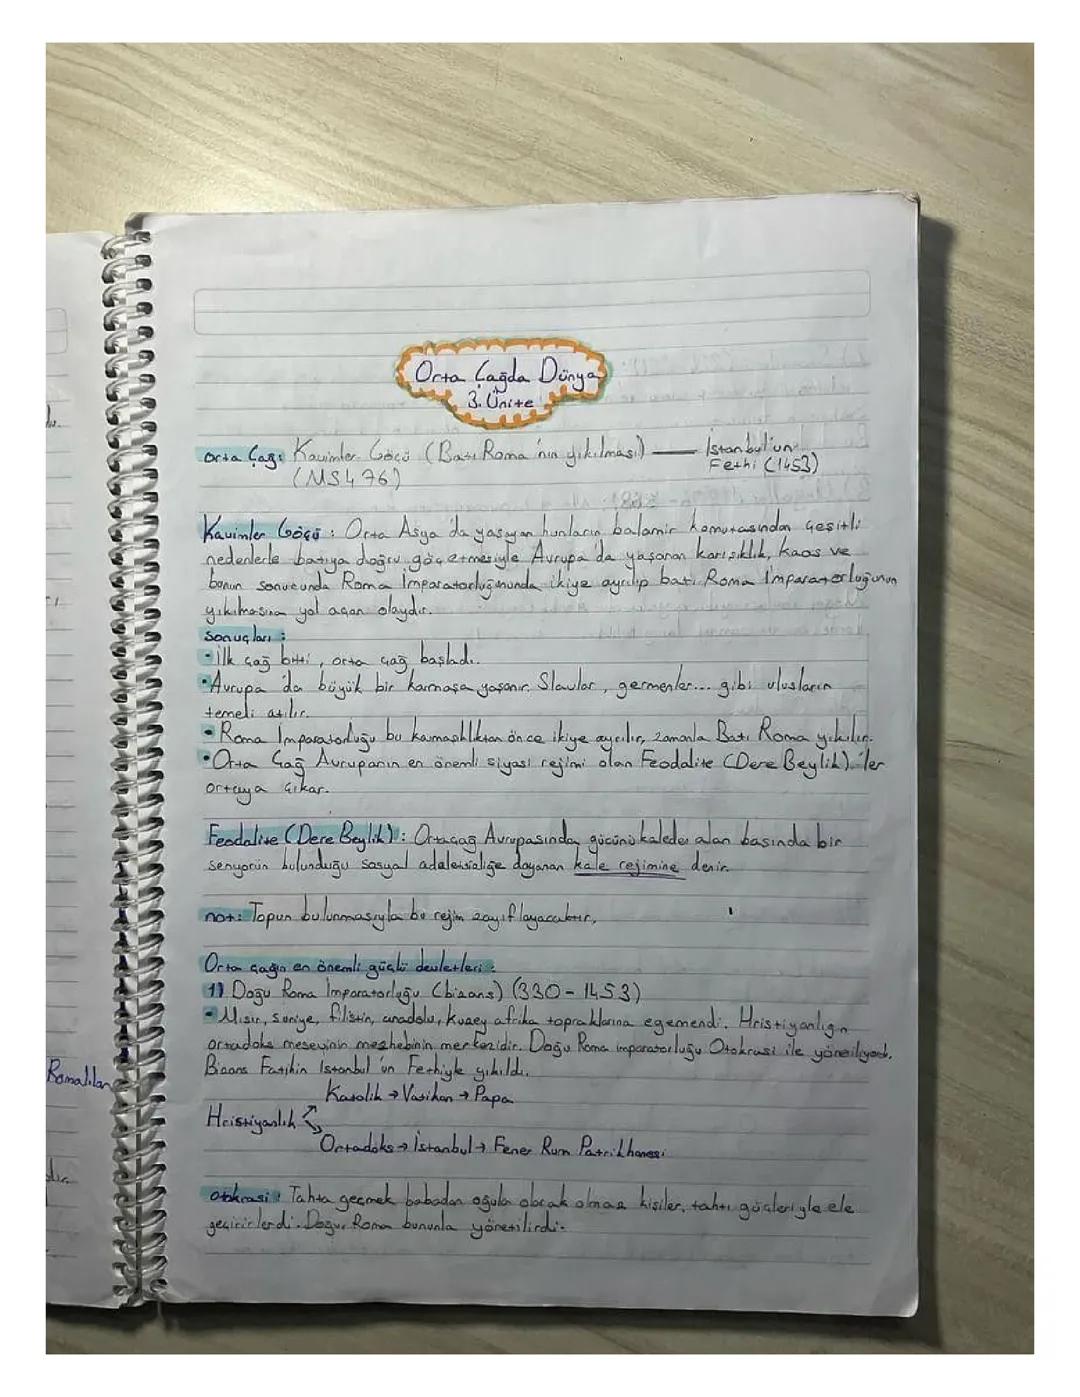 Orta Çağda Dünya
3. Ünite
Orta Çağ: Kavimler Göçü (Batı Roma'nın yıkılması) — İstanbul'un
(MS 476) Fethi (1453)
Kavimler Göçü: Orta Asya'da yaşayan hunların balamir komutasından çeşitli
nedenlerle batıya doğru göç etmesiyle Avrupa'da yaşanan karışıklık, kaos ve
bunun sonucunda Roma İmparatorluğununda ikiye ayrılıp batı Roma İmparatorluğunun
yıkılmasına yol açan olaydır.
Sonuçları:
• İlk çağ bitti, orta çağ başladı.
• Avrupa'da büyük bir karmaşa yaşanır. Slavlar, germenler... gibi ulusların
temeli atılır.
• Roma İmparatorluğu bu karmaşıklıktan önce ikiye ayrılır, zamanla Batı Roma yıkılır.
• Orta Çağ Avrupanın en önemli siyasi rejimi olan Feodalite (Dere Beylik)'ler
ortaya çıkar.
Feodalite (Dere Beylik): Ortaçağ Avrupasında gücünü kaleden alan başında bir
senyörün bulunduğu sosyal adaletsizliğe dayanan kale rejimine denir.
not: Topun bulunmasıyla bu rejim zayıflayacaktır.
Orta çağın en önemli güçlü devletleri:
1) Doğu Roma İmparatorluğu (bizans) (330-1453)
• Mısır, suriye, filistin, anadolu, kuzey afrika topraklarına egemendi. Hristiyanlığın
ortadoks mesevinin mezhebinin merkezidir. Doğu Roma imparatorluğu Otokrasi ile yönetiliyordu.
Bizans Fatihin İstanbul'un Fethiyle yıkıldı.
Katolik → Vatikan → Papa
Hristiyanlık
Ortadoks → İstanbul → Fener Rum Patrikhanesi
otokrasi: Tahta geçmek babadan oğula olarak olmaz kişiler, tahtı güçleriyle ele
geçirirlerdi. Doğu Roma bununla yönetilirdi.
Romalılar